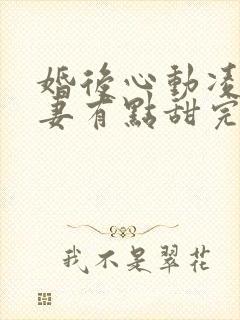 婚後心動凌
妻有點甜完
我不是翠花